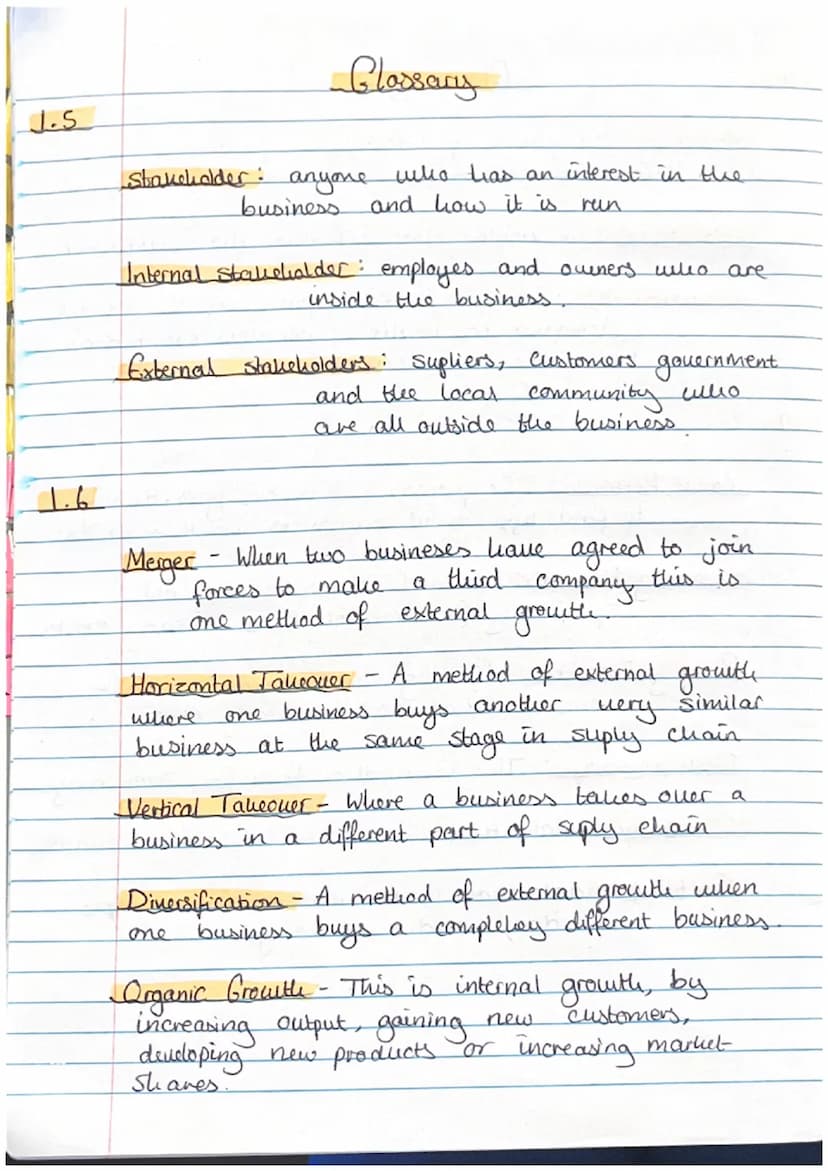 Glossary
1.5
Stakeholder: anyone who has an interest in the
business and how it is run
Internal stakeholder: employes and owners who are
inside the business.
External stakeholders: supliers, customers government
and the local community who
are all outside the business.
1.6
Merger - When two busineses have agreed to join
forces to make a third company, this is
one method of external growth.
Horizontal Takeover - A method of external growth
where one business buys another very similar
business at the same stage in suply chain
Vertical Takeover - Where a business takes over a
business in a different part of suply chain
Diversification - A method of external growth when
one business buys a completley different business.
Organic Growth - This is internal growth, by
increasing output, gaining new customers,
developing new products or increasing market
shares.